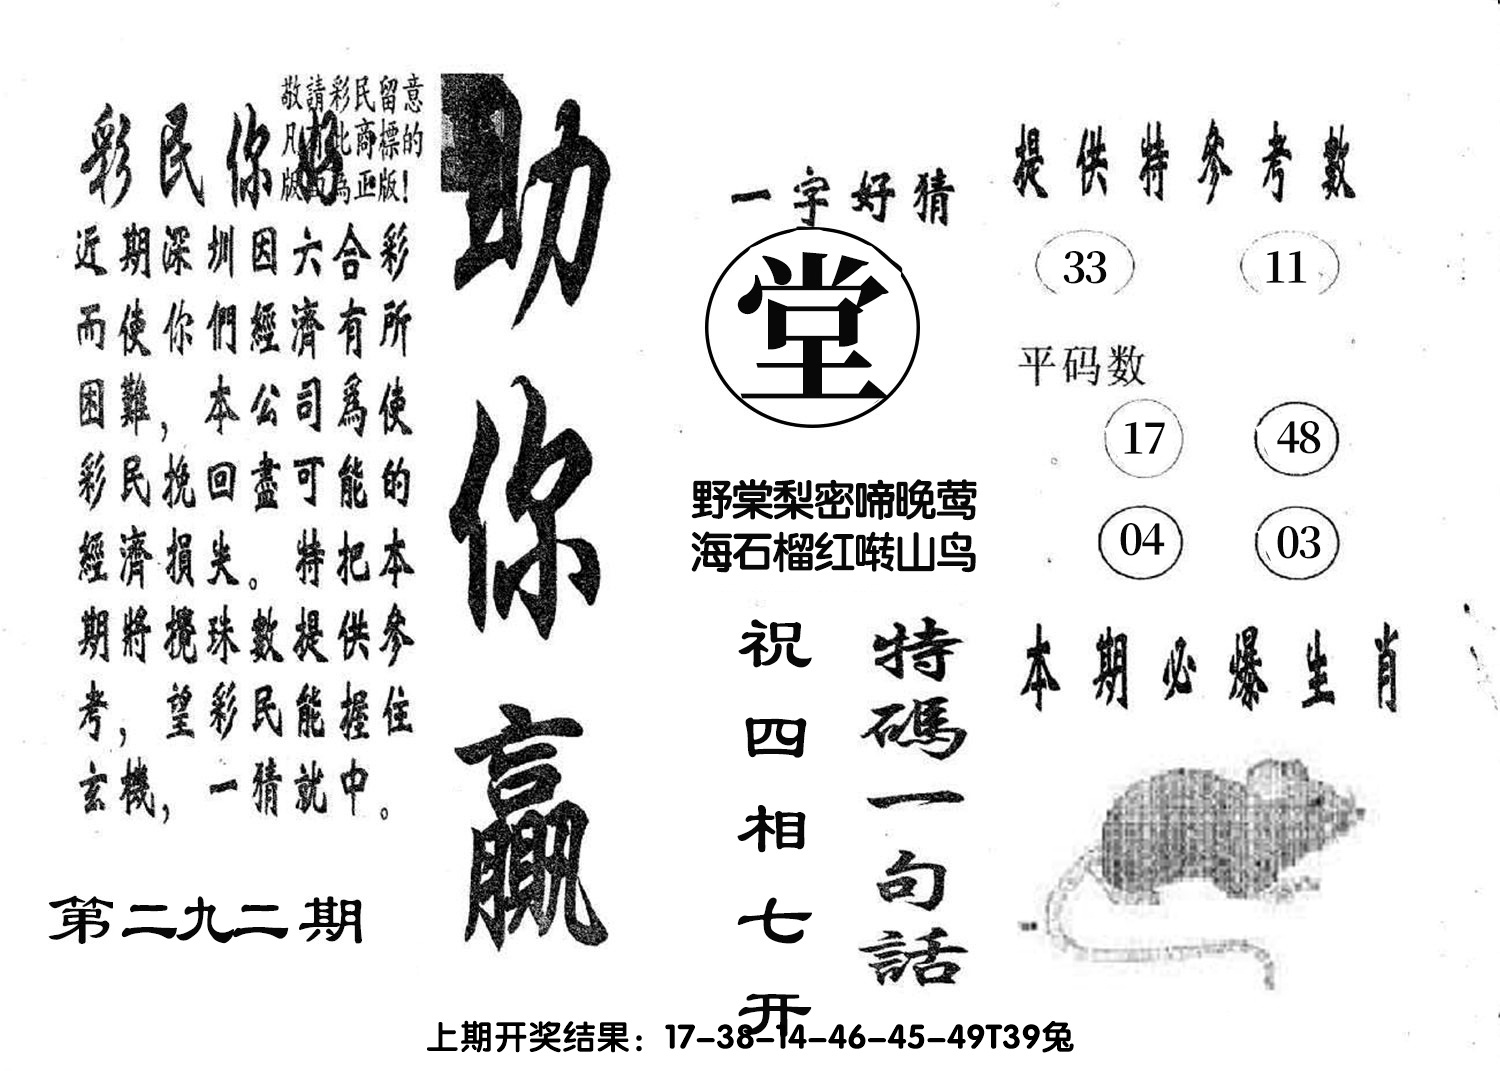 敬請彩民留意
凡有此商標的
版面為正版！
彩民你好
近期深圳因六合彩
而使你們經濟有所
困難，本公司爲使
彩民挽回盡可能的
經濟損失。特把本
期將攪珠數提供參
考，望彩民能握住
玄機，一猜就中。
第二九二期
助你贏
一字好猜
堂
野棠梨密啼晚莺
海石榴红啭山鸟
特碼一句話
祝四相七开
提供特參考數
33 11
平码数
17 48
04 03
本期必爆生肖
上期开奖结果：17-38-14-46-45-49T39兔